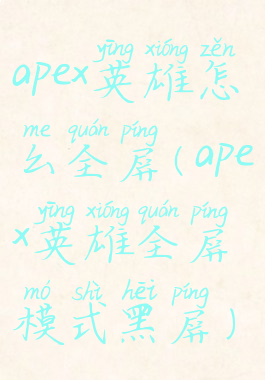 yīng xióng zěn
apex英雄怎
me quán píng
么全屏(ape
yīng xióng quán píng
x英雄全屏
mó shì hēi píng
模式黑屏)